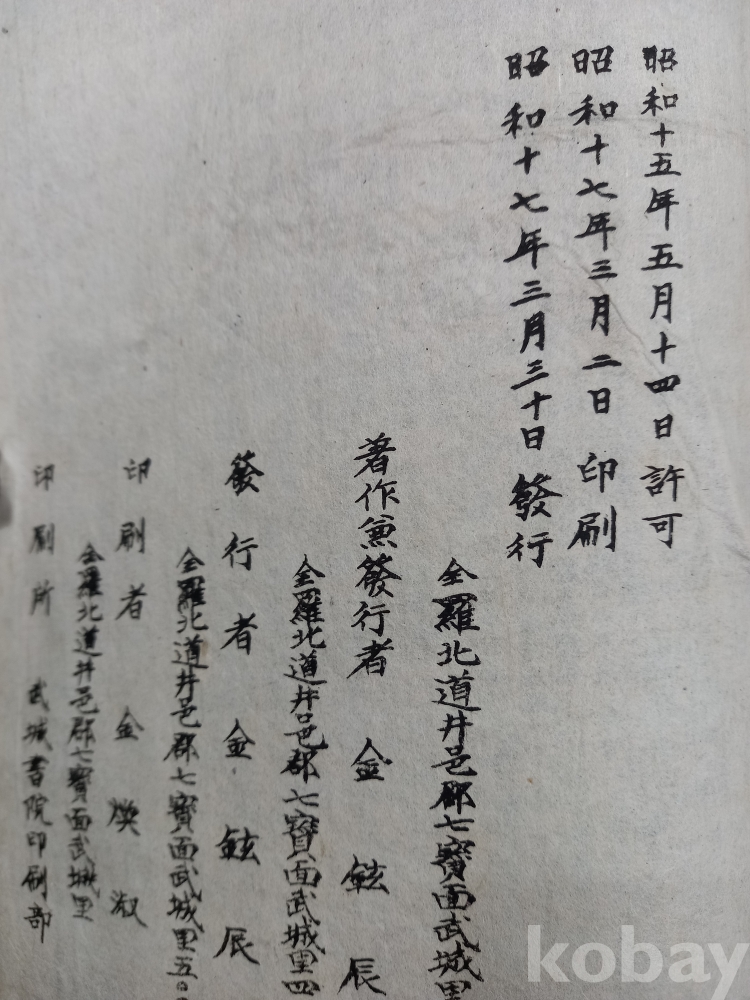 昭和十五年五月十四日許可
昭和十七年三月二日印刷
昭和十七年三月三十日發行
全羅北道井邑郡七寶面武城里
著作兼發行者 金鉉辰
全羅北道井邑郡七寶面武城里四
發行者 金鉉辰
全羅北道井邑郡七寶面武城里五
印刷者 金煥淑
全羅北道井邑郡七寶面武城里
印刷所 武城書院印刷部
kobay